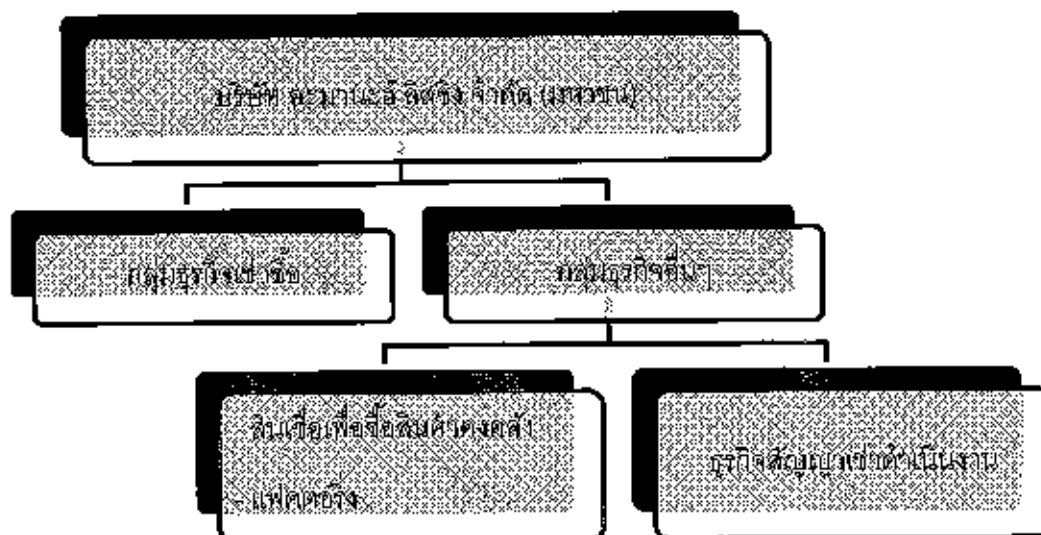 บริษัท ฐะมานะลี ลิสซิ่ง จำกัด (มหาชน)
กลุ่มธุรกิจเช่าซื้อ
กลุ่มธุรกิจอื่นๆ
- สินเชื่อเพื่อซื้อสินค้าคงคลัง
- แฟคตอริ่ง
ธุรกิจสัญญาเช่าดำเนินงาน